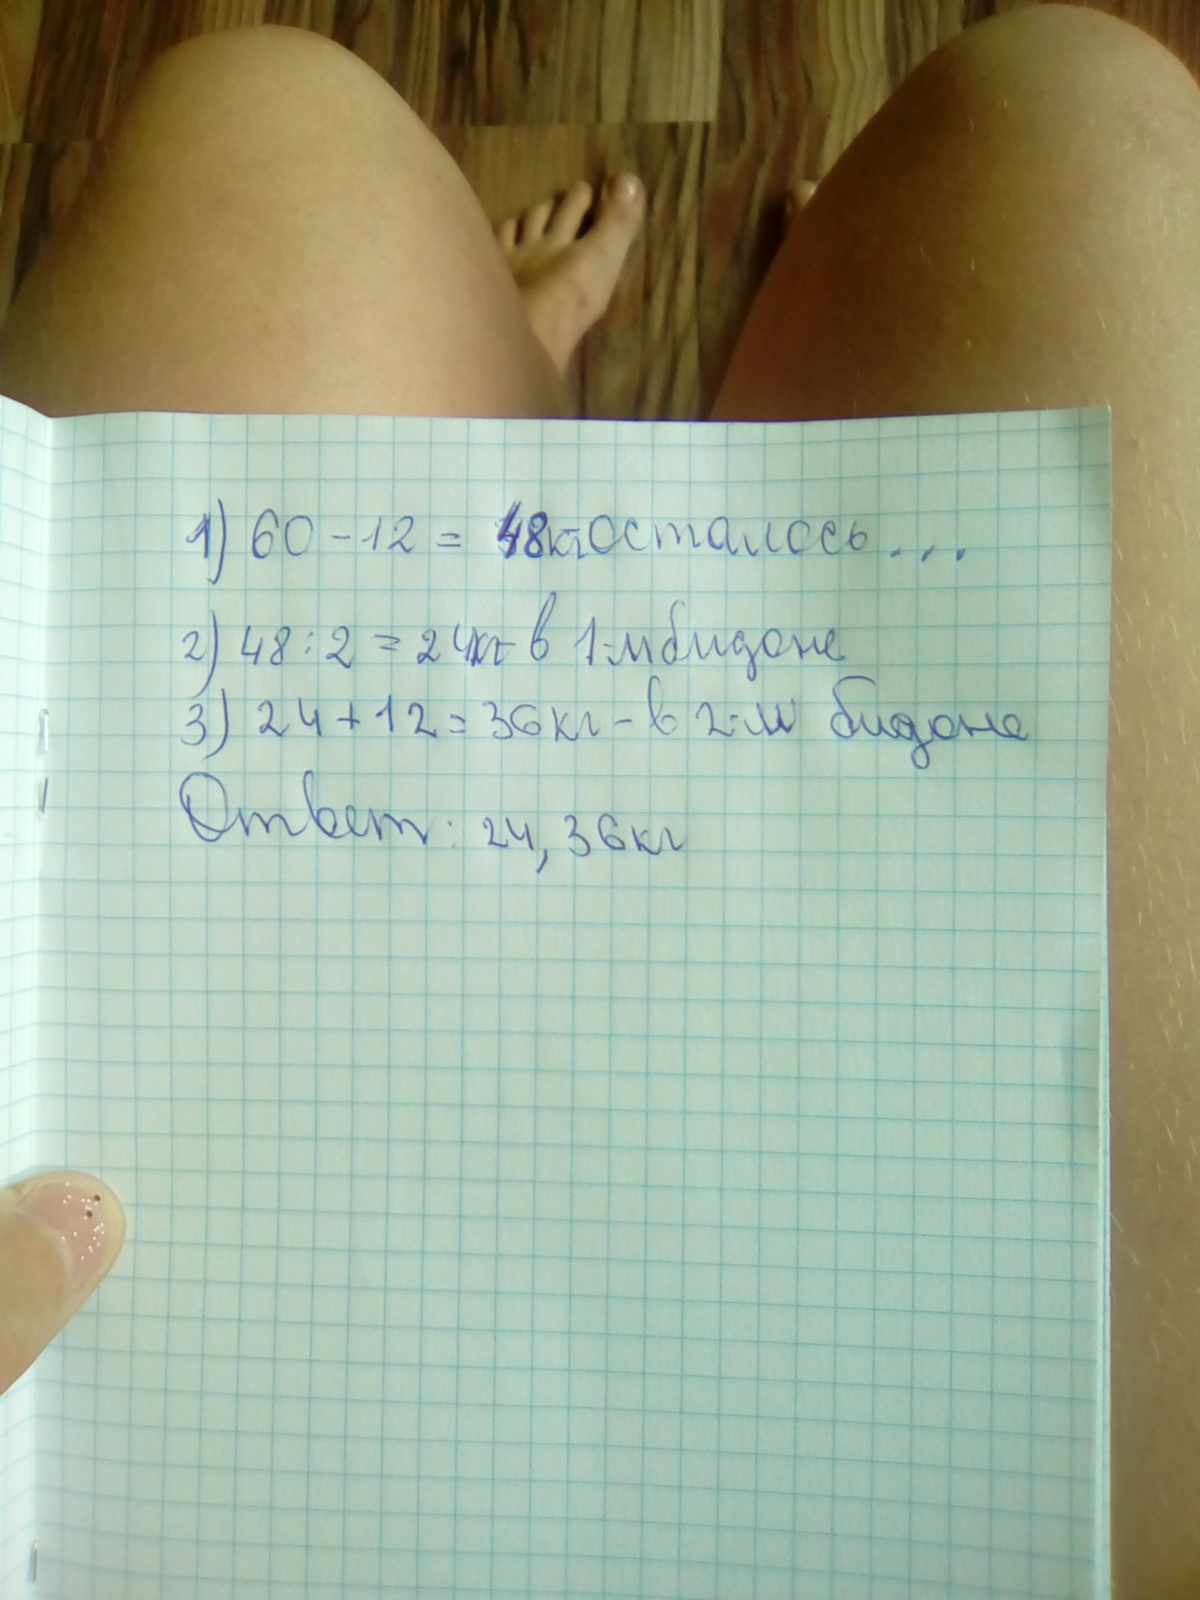 1) 60 - 12 = 48кг осталось...
2) 48 : 2 = 24кг - в 1-м бидоне
3) 24 + 12 = 36кг - в 2-м бидоне
Ответ: 24, 36кг